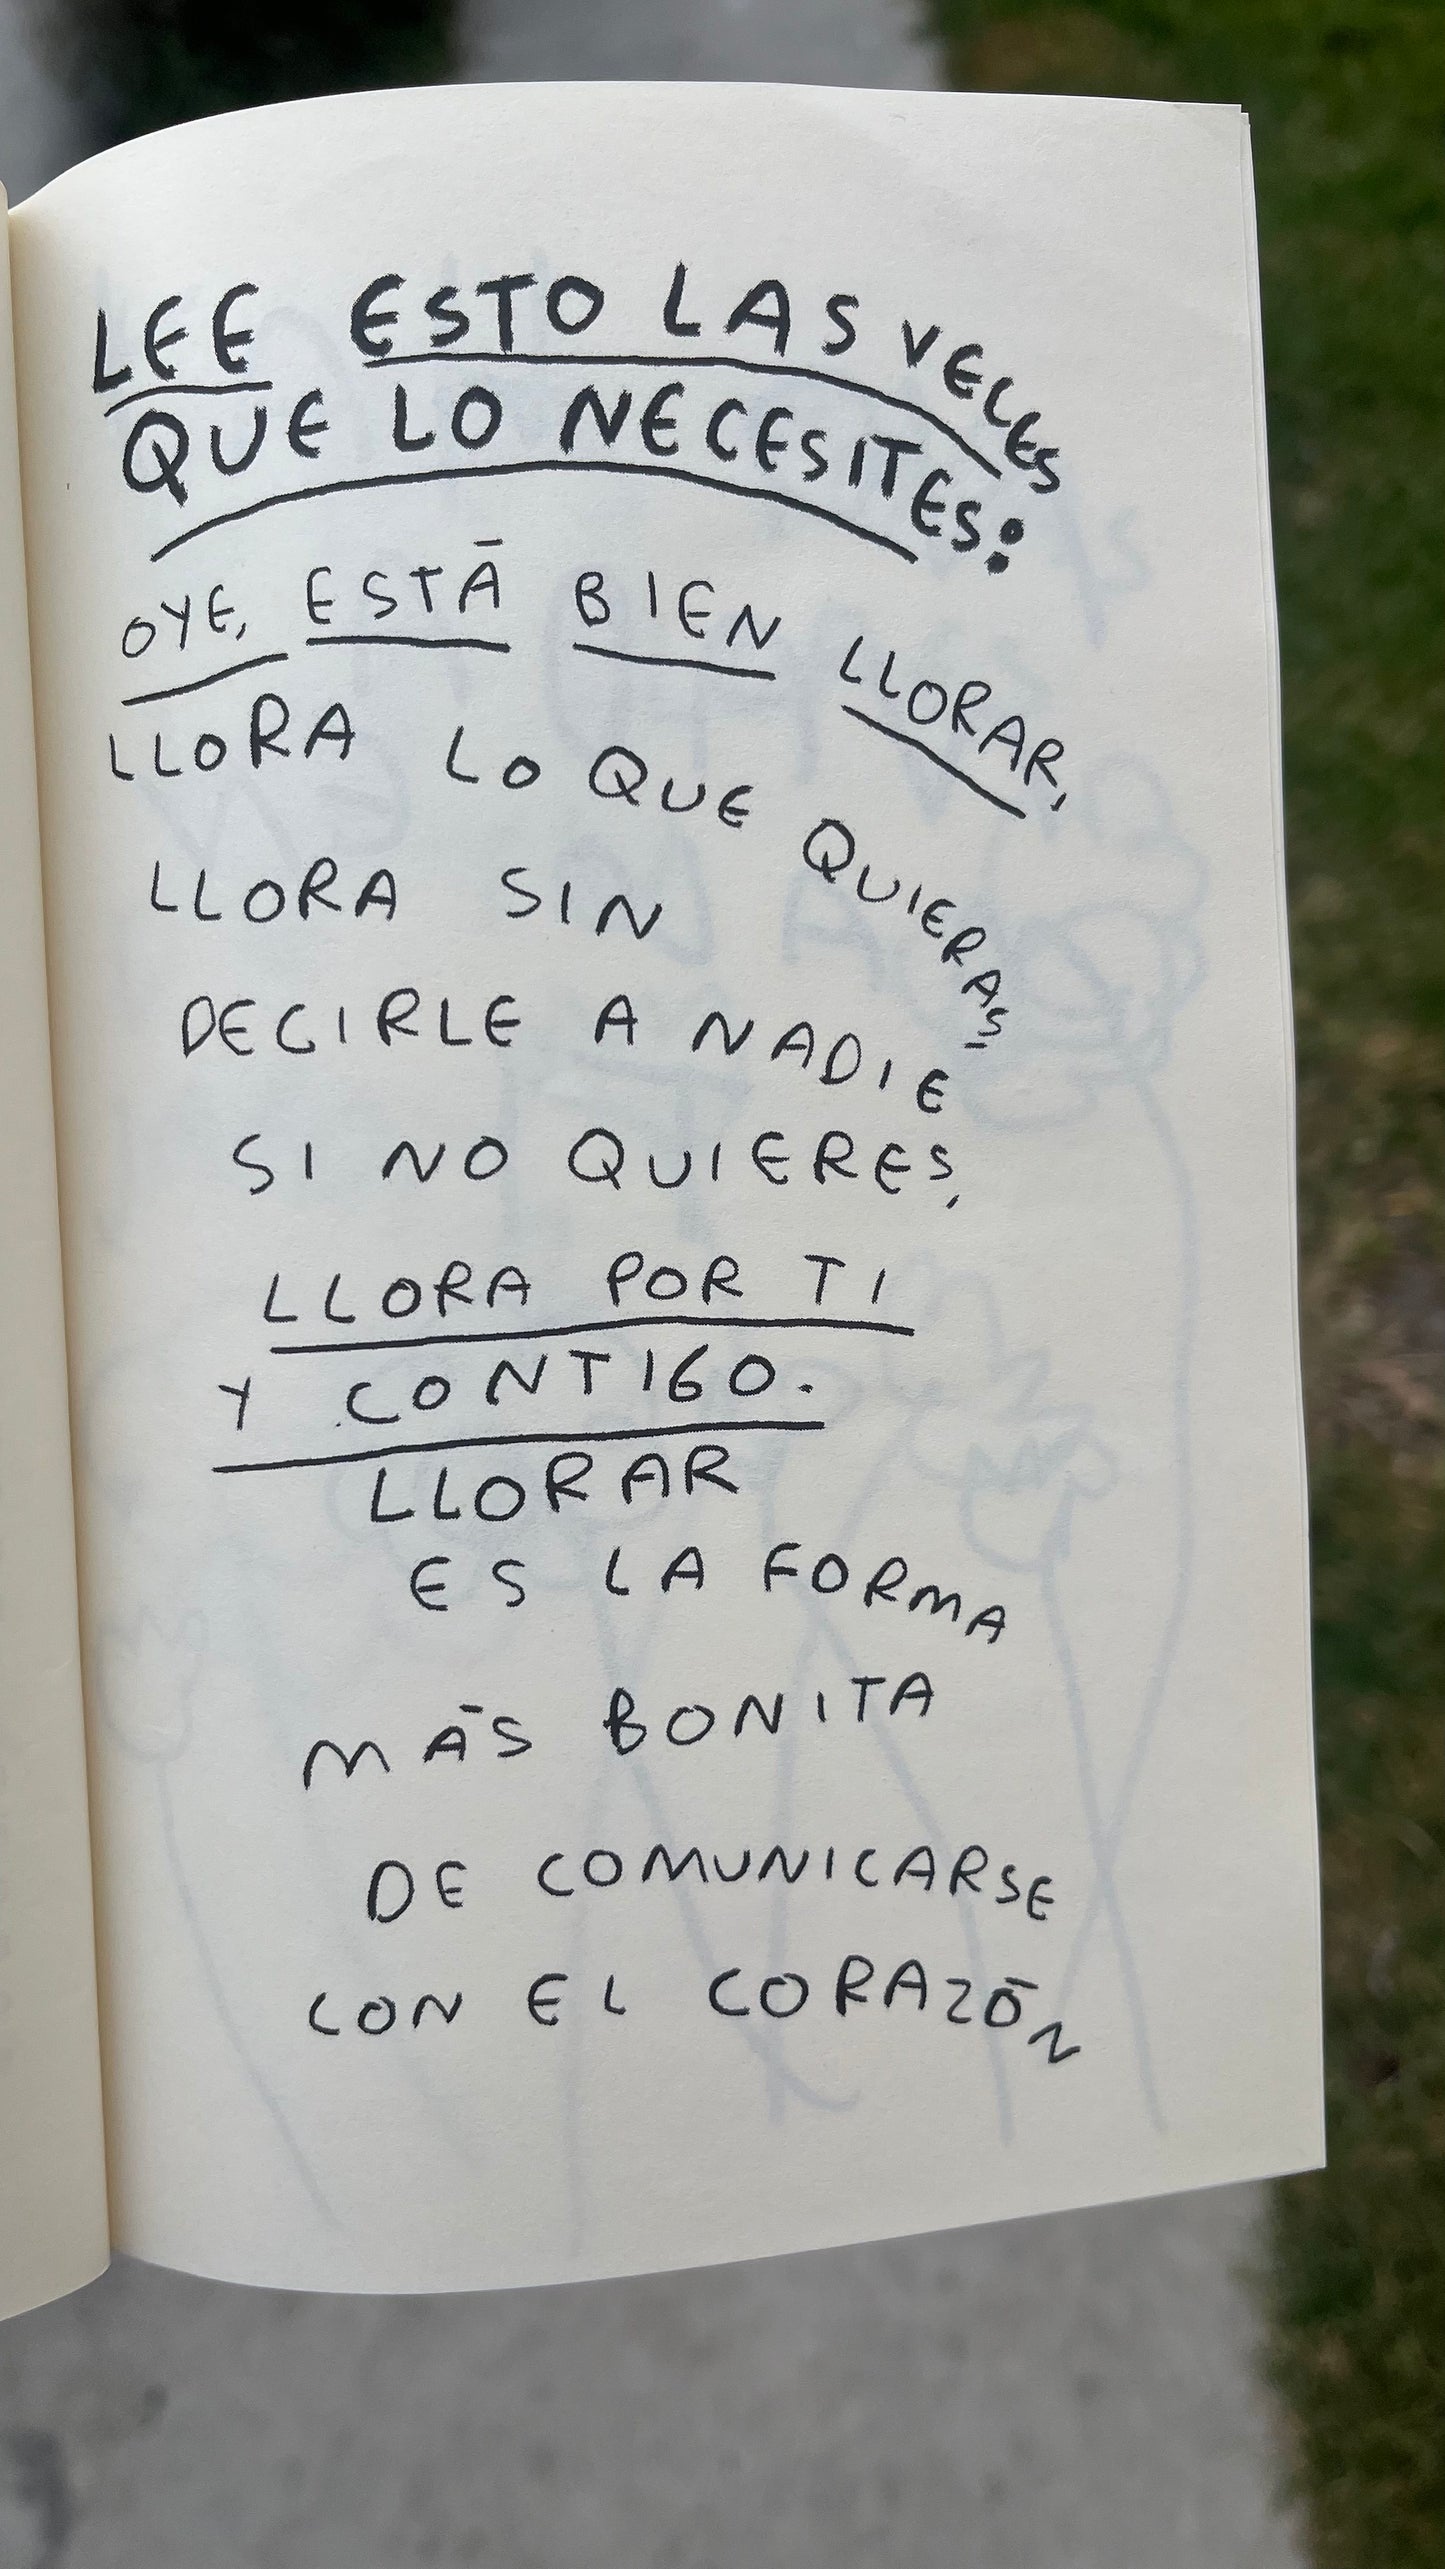 LEE ESTO LAS VECES
QUE LO NECESITES:
OYE, ESTÁ BIEN LLORAR,
LLORA LO QUE QUIERAS
LLORA SIN
DECIRLE A NADIE
SI NO QUIERES,
LLORA POR TI
Y CONTIGO.
LLORAR
ES LA FORMA
MÁS BONITA
DE COMUNICARSE
CON EL CORAZÓN